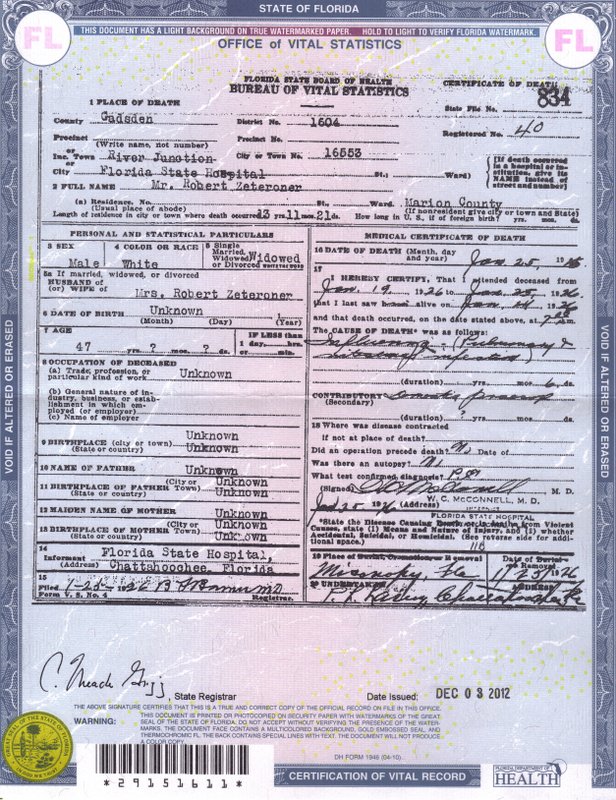 STATE OF FLORIDA
THIS DOCUMENT HAS A LIGHT BACKGROUND ON TRUE WATERMARKED PAPER. HOLD TO LIGHT TO VERIFY FLORIDA WATERMARK.
FL FL
OFFICE of VITAL STATISTICS
FLORIDA STATE BOARD OF HEALTH
BUREAU OF VITAL STATISTICS
CERTIFICATE OF DEATH
834
1 PLACE OF DEATH
State File No.
County Gadsden District No. 1604 Registered No. 40
Precinct Precinct No.
(Write name, not number)
or
Inc. Town River Junction City or Town No. 16553
or
City Florida State Hospital St.; Ward)
[If death occurred in a hospital or institution, give its NAME instead of street and number]
2 FULL NAME Mr. Robert Zeteroner
(a) Residence. No. St., Ward. Marion County
(Usual place of abode) (If nonresident give city or town and State)
Length of residence in city or town where death occurred 13 yrs. 11 mos. 21 ds. How long in U. S., if of foreign birth? yrs. mos. ds.
PERSONAL AND STATISTICAL PARTICULARS
3 SEX 4 COLOR OR RACE 5 Single Married, Widowed, or Divorced
Male White Widowed
5a If married, widowed, or divorced
HUSBAND of
(or) WIFE of Mrs. Robert Zeteroner
6 DATE OF BIRTH Unknown
(Month) (Day) (Year)
7 AGE IF LESS than
47 yrs. ? mos. ? ds. 1 day, hrs. or min.
8 OCCUPATION OF DECEASED
(a) Trade, profession, or particular kind of work Unknown
(b) General nature of industry, business, or establishment in which employed (or employer)
(c) Name of employer
9 BIRTHPLACE (city or town) Unknown
(State or country) Unknown
10 NAME OF FATHER Unknown
11 BIRTHPLACE OF FATHER (City or Town) Unknown
(State or country) Unknown
12 MAIDEN NAME OF MOTHER Unknown
13 BIRTHPLACE OF MOTHER (City or Town) Unknown
(State or country) Unknown
14
Informant Florida State Hospital,
(Address) Chattahoochee, Florida
15
Filed 1-25- 1926
Registrar.
Form V. S. No. 4
MEDICAL CERTIFICATE OF DEATH
16 DATE OF DEATH (Month, day and year) Jan 25, 19
17
I HEREBY CERTIFY, That I attended deceased from
Jan. 19 1926 to Jan 25, 1926.
that I last saw alive on Jan 1926
and that death occurred, on the date stated above, at 7 am.
The CAUSE OF DEATH* was as follows:
Influenza - (Pulmonary &
Intestinal infection)
(duration) yrs. mos. 6 ds.
CONTRIBUTORY
(Secondary)
(duration) ? yrs. mos. ds.
18 Where was disease contracted
If not at place of death?
Did an operation precede death? No Date of
Was there an autopsy? No
What test confirmed diagnosis? P.E.
(Signed) M. D.
W. C. McCONNELL, M. D.
Jan 25 1926 (Address)
FLORIDA STATE HOSPITAL
*State the Disease Causing Death, or in deaths from Violent Causes, state (1) Means and Nature of Injury, and (2) whether Accidental, Suicidal, or Homicidal. (See reverse side for additional space.)
118
19 Place of Burial, Cremation or Removal Date of Burial or Removal
Micanopy, Fla 1/25/1926
20 UNDERTAKER ADDRESS
State Registrar
Date Issued: DEC 03 2012
THE ABOVE SIGNATURE CERTIFIES THAT THIS IS A TRUE AND CORRECT COPY OF THE OFFICIAL RECORD ON FILE IN THIS OFFICE.
WARNING: THIS DOCUMENT IS PRINTED OR PHOTOCOPIED ON SECURITY PAPER WITH WATERMARKS OF THE GREAT
SEAL OF THE STATE OF FLORIDA. DO NOT ACCEPT WITHOUT VERIFYING THE PRESENCE OF THE WATER-
MARKS. THE DOCUMENT FACE CONTAINS A MULTICOLORED BACKGROUND, GOLD EMBOSSED SEAL, AND
THERMOCHROMIC FL. THE BACK CONTAINS SPECIAL LINES WITH TEXT. THE DOCUMENT WILL NOT PRODUCE
A COLOR COPY.
DH FORM 1946 (04-10)
*29151611*
CERTIFICATION OF VITAL RECORD
FLORIDA DEPARTMENT OF
HEALTH
VOID IF ALTERED OR ERASED
VOID IF ALTERED OR ERASED